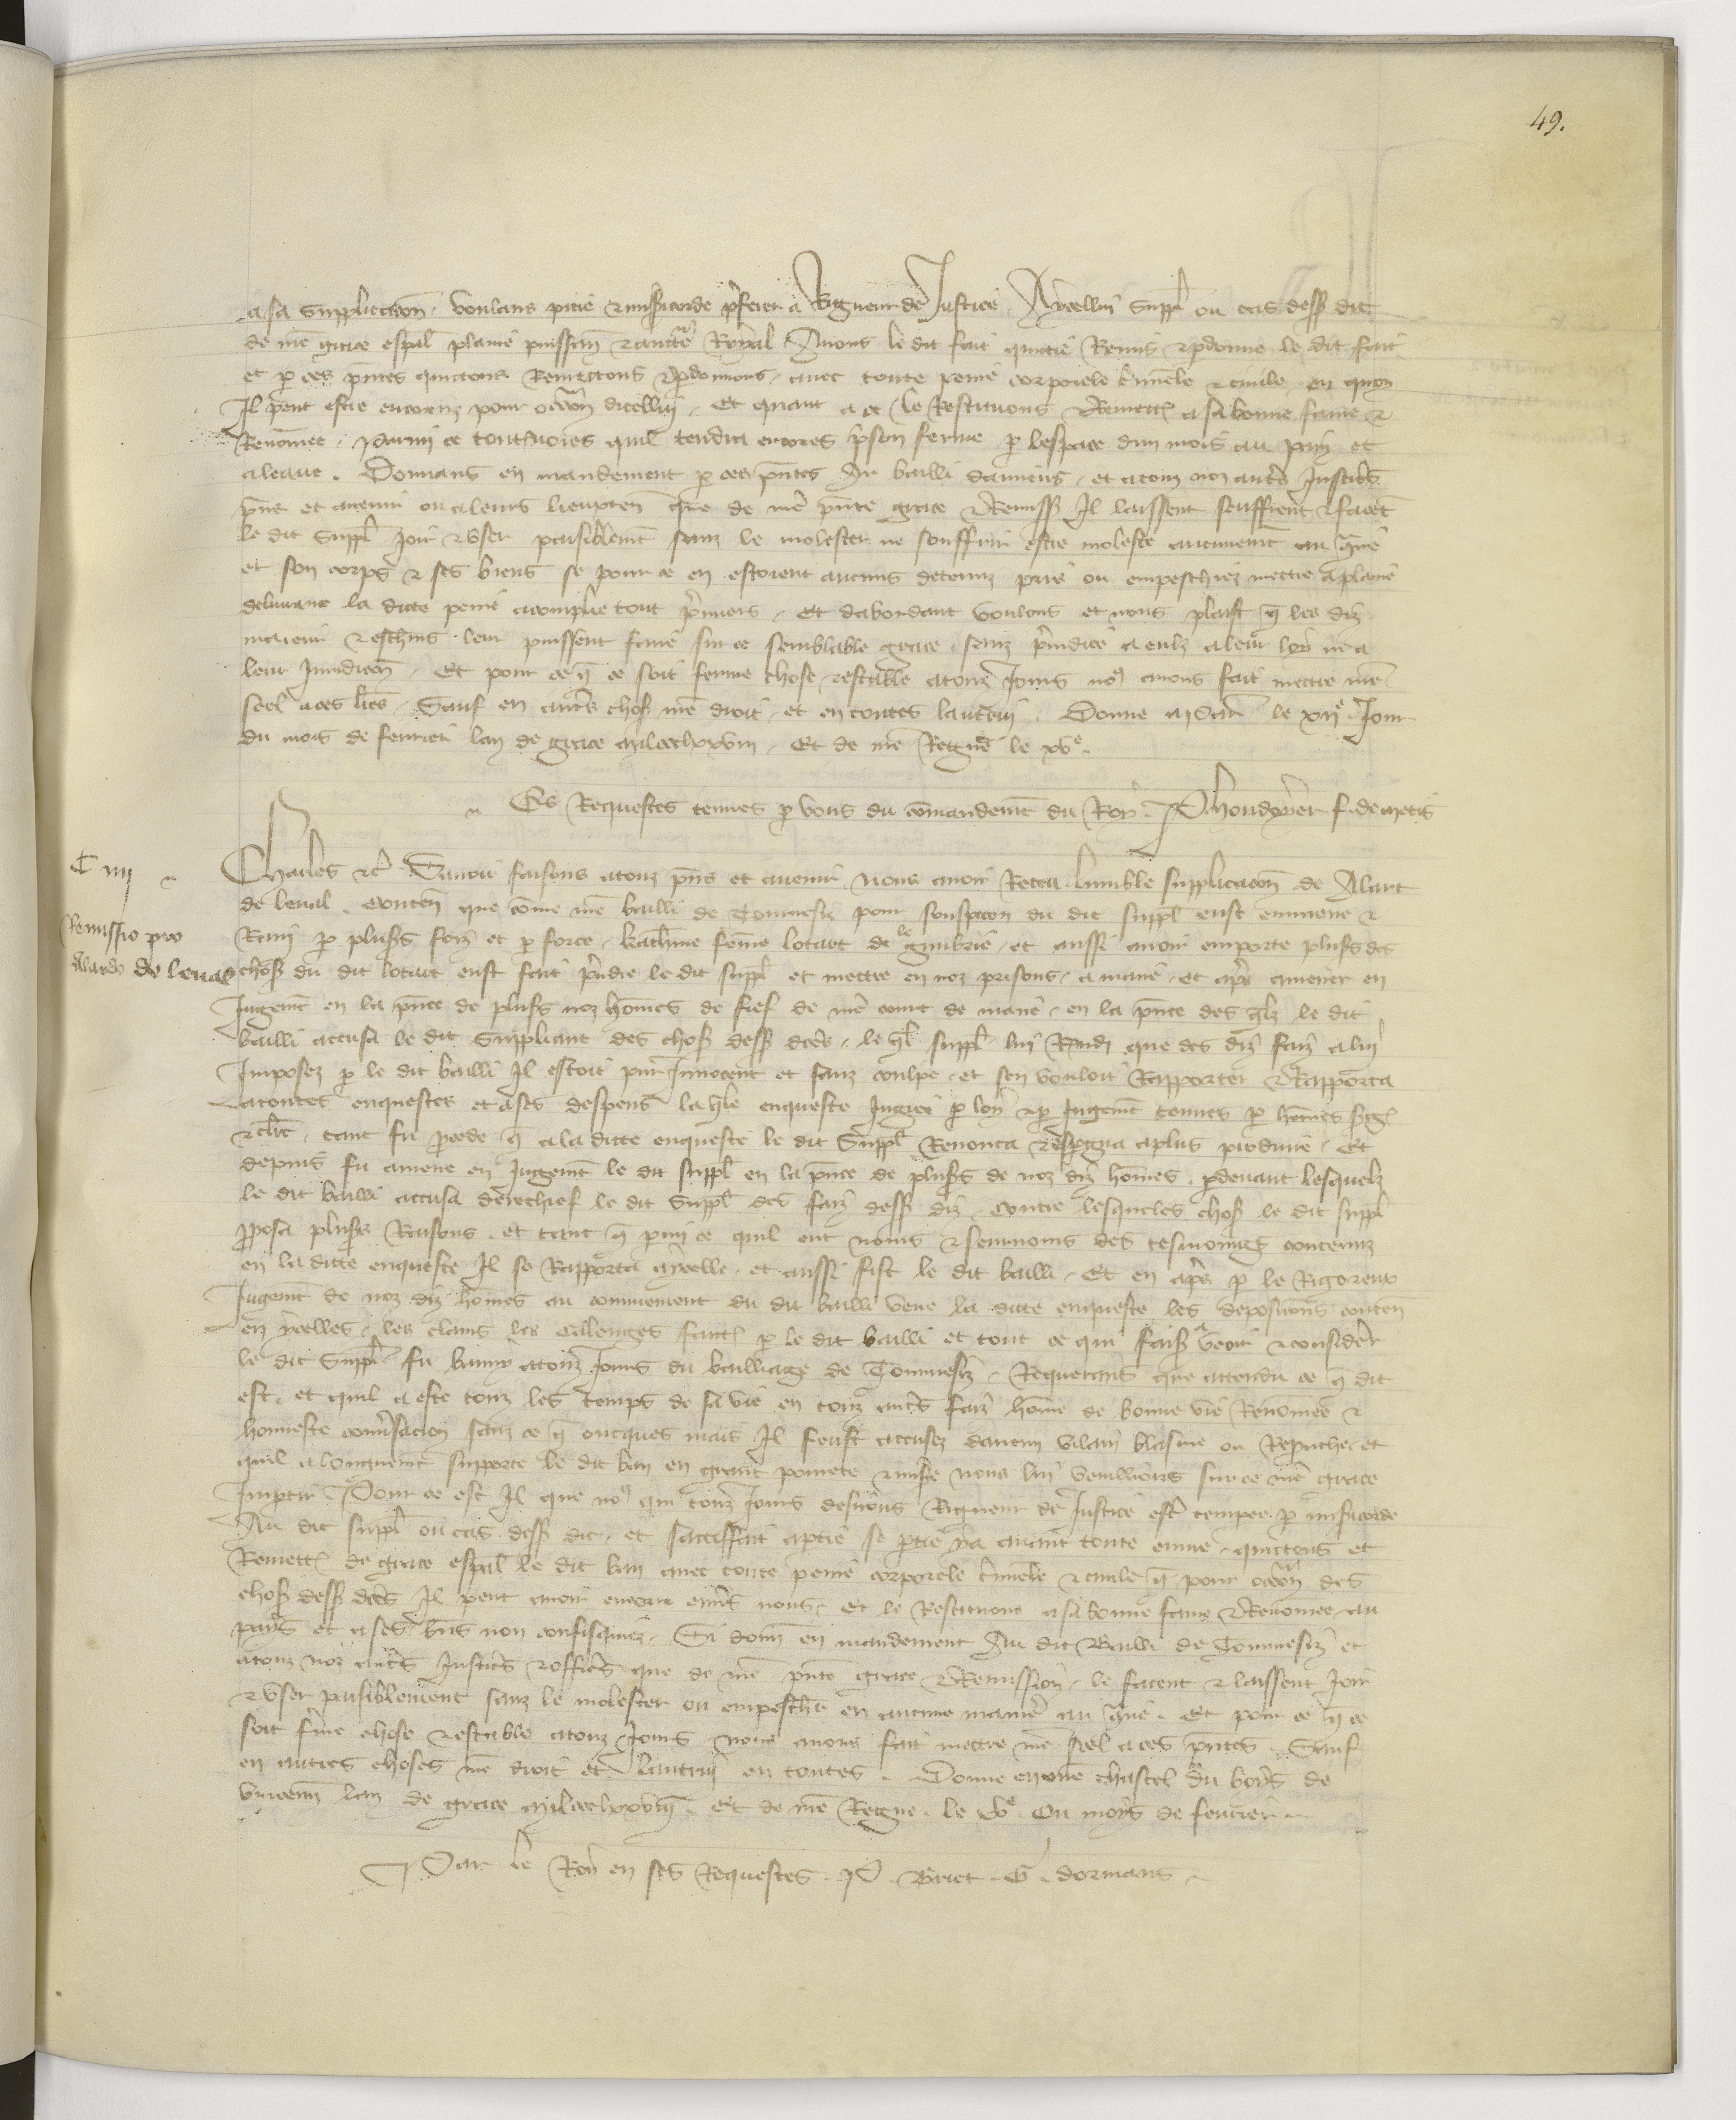 49.
a sa supplicacion voulans pitie & misericorde preferer a Rigueur de Justice A ycellui suppl ou cas dess dit
de nre grace espal plaine puissan & auctte Royal Avons le dit fait quictie Remis & pdonne le dit fait
et p ces pntes quictons Remettons & pdonnons avec toute peine corporele criminele & civile en quoy
Il peut estre encoruz pour occon dicellui Et quant a ce le Restituons & Remett a sa bonne fame &
Renomee parmi ce toutevoies quil tendra encores prison ferme p lespace dun mois au pain et
a leaue Donnans en mandement p ces pntes Au bailli damiens et a touz noz autres Justiciers
pns et avenir ou a leurs lieuxten que de nre pnte grace & Remiss Il laissent seuffrent & facet
le dit suppl Joir & user paisiblement sanz le molester ne souffrir estre moleste aucunement au qtraire
et son corps & ses biens se pour ce en estoient aucuns detenuz pris ou empeschiez mettre a plaine
delivrance la dicte peine acomplie tout premiers Et dabondant voulons et nous plaist q les diz
maieur & eschins leur puissent faire sur ce semblable grace sanz preiudice a eulz a leur loy ne a
leur Juridicion Et pour ce q ce soit ferme chose & estable a touz Jours no avons fait mettre nre
seel a ces lres Sauf en autres chos nre droit et en toutes lautrui Donne a Paris le xiie Jour
du mois de fevrier lan de grace mil ccclxxviii Et de nre Regne le xve
Es Requestes tenues p vous du comandement du Roy P Houdoyer f. de metis
C iiii
Charles &c Savoir faisons a touz pns et avenir nous avoir Receu lumble supplicacion de Alart
de leval conten que come nre bailli de Tournesiz pour souspecon du dit suppl eust enmene &
Remissio pro
Alardo de levac
Ravi p plusrs foiz et p force katherine feme lotart de le gimbrie et aussi avoir emporte plusrs des
choss du dit lotart eust fait prendre le dit suppl et mettre en noz prisons a maire et apres amener en
Jugement en la pnce de plusrs noz homes de fief de nre court de maire en la pnce des qlz le dit
bailli accusa le dit suppliant des chos dess dces le ql suppl lui Rendi que des diz faiz a lui
Imposez p le dit bailli Il estoit pur Innocent et sanz coulpe et sen vouloit Rapporter & Rapporta
a toutes enquestes et a ses despens la qle enqueste Jugiee p loy & p Jugement tenues p homes
tant fu procede q a la dicte enqueste le dit suppl Renonca & espgna a plus produire Et
depuis fu amene en Jugement le dit suppl en la pnce de plusrs de noz diz homes pdevant lesquelz
le dit bailli accusa derechief le dit suppl des faiz dess diz contre lesqueles chos le dit suppl
pposa plusrs Raisons et tant q parmi ce quil eut noms & seurnoms des tesmoings contenuz
en la dicte enqueste Il se Rapporta a ycelle et aussi fist le dit bailli Et en apres p le Rigoreux
Jugement de noz diz homes au conjurement du dit bailli veue la dicte enqueste les deposicions conten
en ycelles les clains les calenges faict p le dit bailli et tout ce qui faisoit a veoir & considerer
le dit suppl fu banny a touz Jours du bailliage de Tournesiz Requerans que attendu ce q dit
est et quil a este touz les temps de sa vie en touz autres faiz home de bonne vie Renomee &
honneste conversacion sanz ce q oncques mais Il feust accusez daucun vilain blasme ou Reprouche et
quil a longuement supporte le dit ban en grant povrete & misere nous lui veuillions sur ce nre grace
Impartir Pour ce est Il que no qui touz Jours desirons Rigueur de Justice estre tempee p misericorde
Au dit suppl ou cas dess dit et satisffait a ptie se ptie y a avant toute euvre quictons et
Remett de grace espal le dit ban avec toute peine corporele criminele & civile q pour occon des
chos dess dces Il peut avoir encouru envers nous Et le Restituons a sa bonne fame & Renomee au
pays et a ses biens non confisquiez Si donn en mandement Au dit Bailli de Tournesiz et
a touz noz autres Justiciers & officiers que de nre pnte grace & Remission le facent & laissent Joir
& user paisiblement sanz le molester ou empescher en aucune maniere au qtraire Et pour ce q ce
soit ferme chose & estable a touz Jours nous avons fait mettre nre seel a ces pntes Sauf
en autres choses nre droit et lautrui en toutes Donne en nre chastel du boys de
vincenn lan de grace mil ccclxxviii Et de nre Regne le xve Ou moys de fevrier
Par le Roy en ses Requestes P Briet G dormans